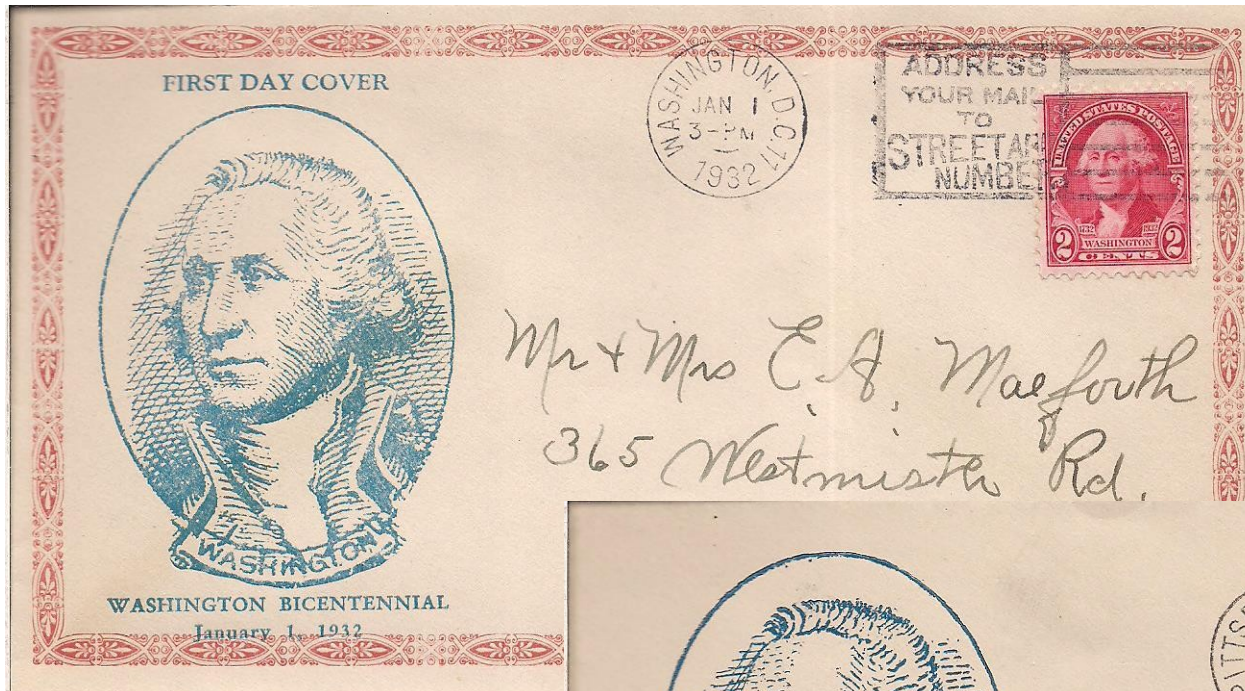 FIRST DAY COVER
WASHINGTON
WASHINGTON BICENTENNIAL
January 1, 1932
WASHINGTON, D.C. 11
JAN 1
3-PM
1932
ADDRESS
YOUR MAIL
TO
STREET AND
NUMBER
UNITED STATES POSTAGE
1732 1932
WASHINGTON
2 CENTS 2
Mr + Mrs E. A.
365 Westminster Rd.